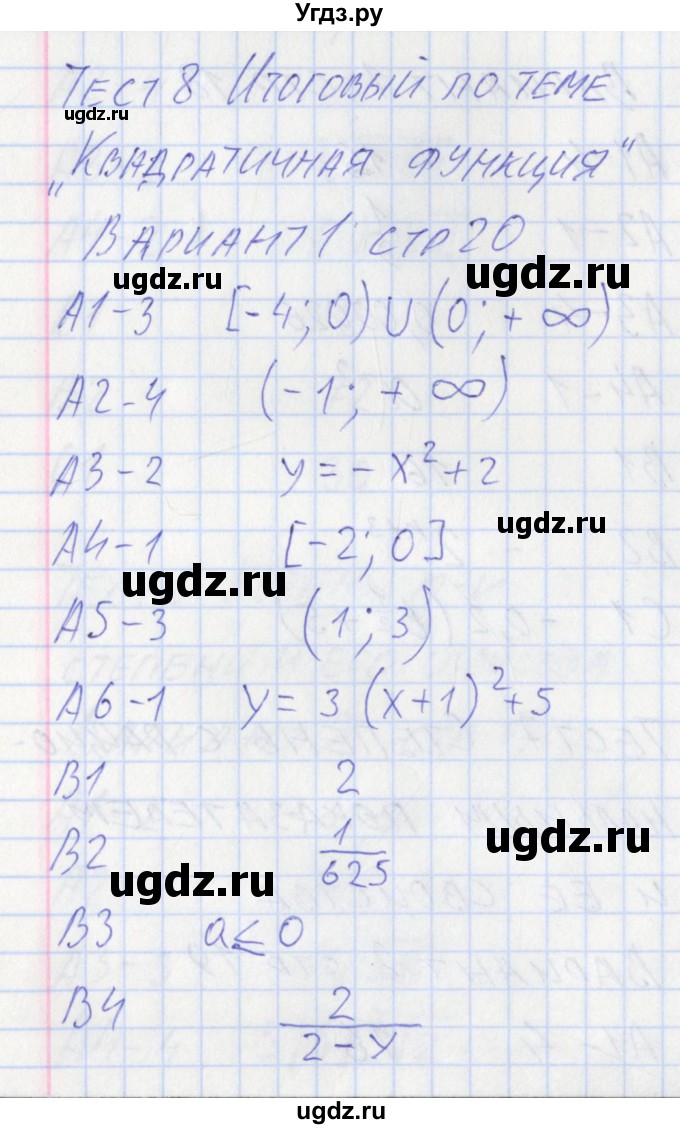 Угдз.ру
Тест 8 Итоговый по теме
ugdz.ru
"Квадратичная функция"
Вариант 1 стр 20
ugdz.ru
ugdz.ru
А1-3 [-4; 0) ∪ (0; + ∞)
А2-4 (-1; + ∞)
А3-2 y = - x² + 2
ugdz.ru
А4-1 [-2; 0]
ugdz.ru
А5-3 (1; 3)
А6-1 y = 3 (x+1)² + 5
В1 2
ugdz.ru
В2 1/625
ugdz.ru
В3 a ≤ 0
В4 2/(2-y)
ugdz.ru